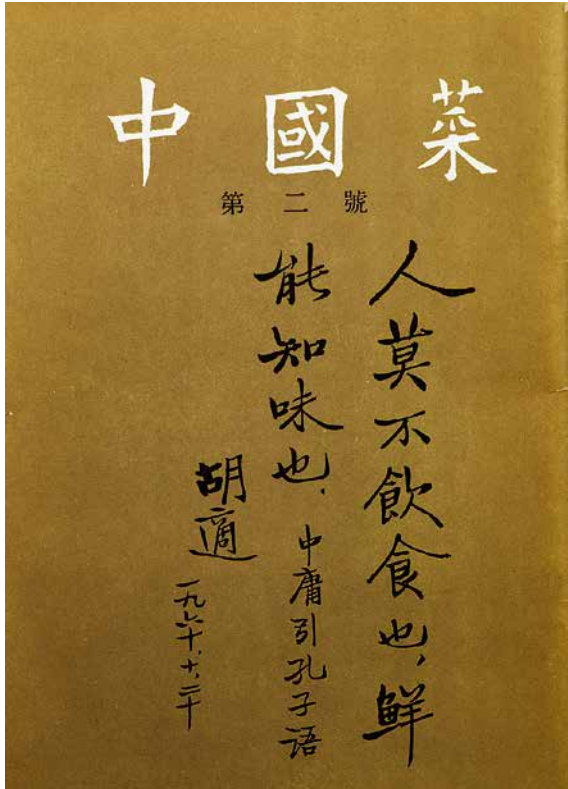 中國菜
第二號
人莫不飲食也，鮮
能知味也．中庸引孔子語
胡適
一九六十、十、二十